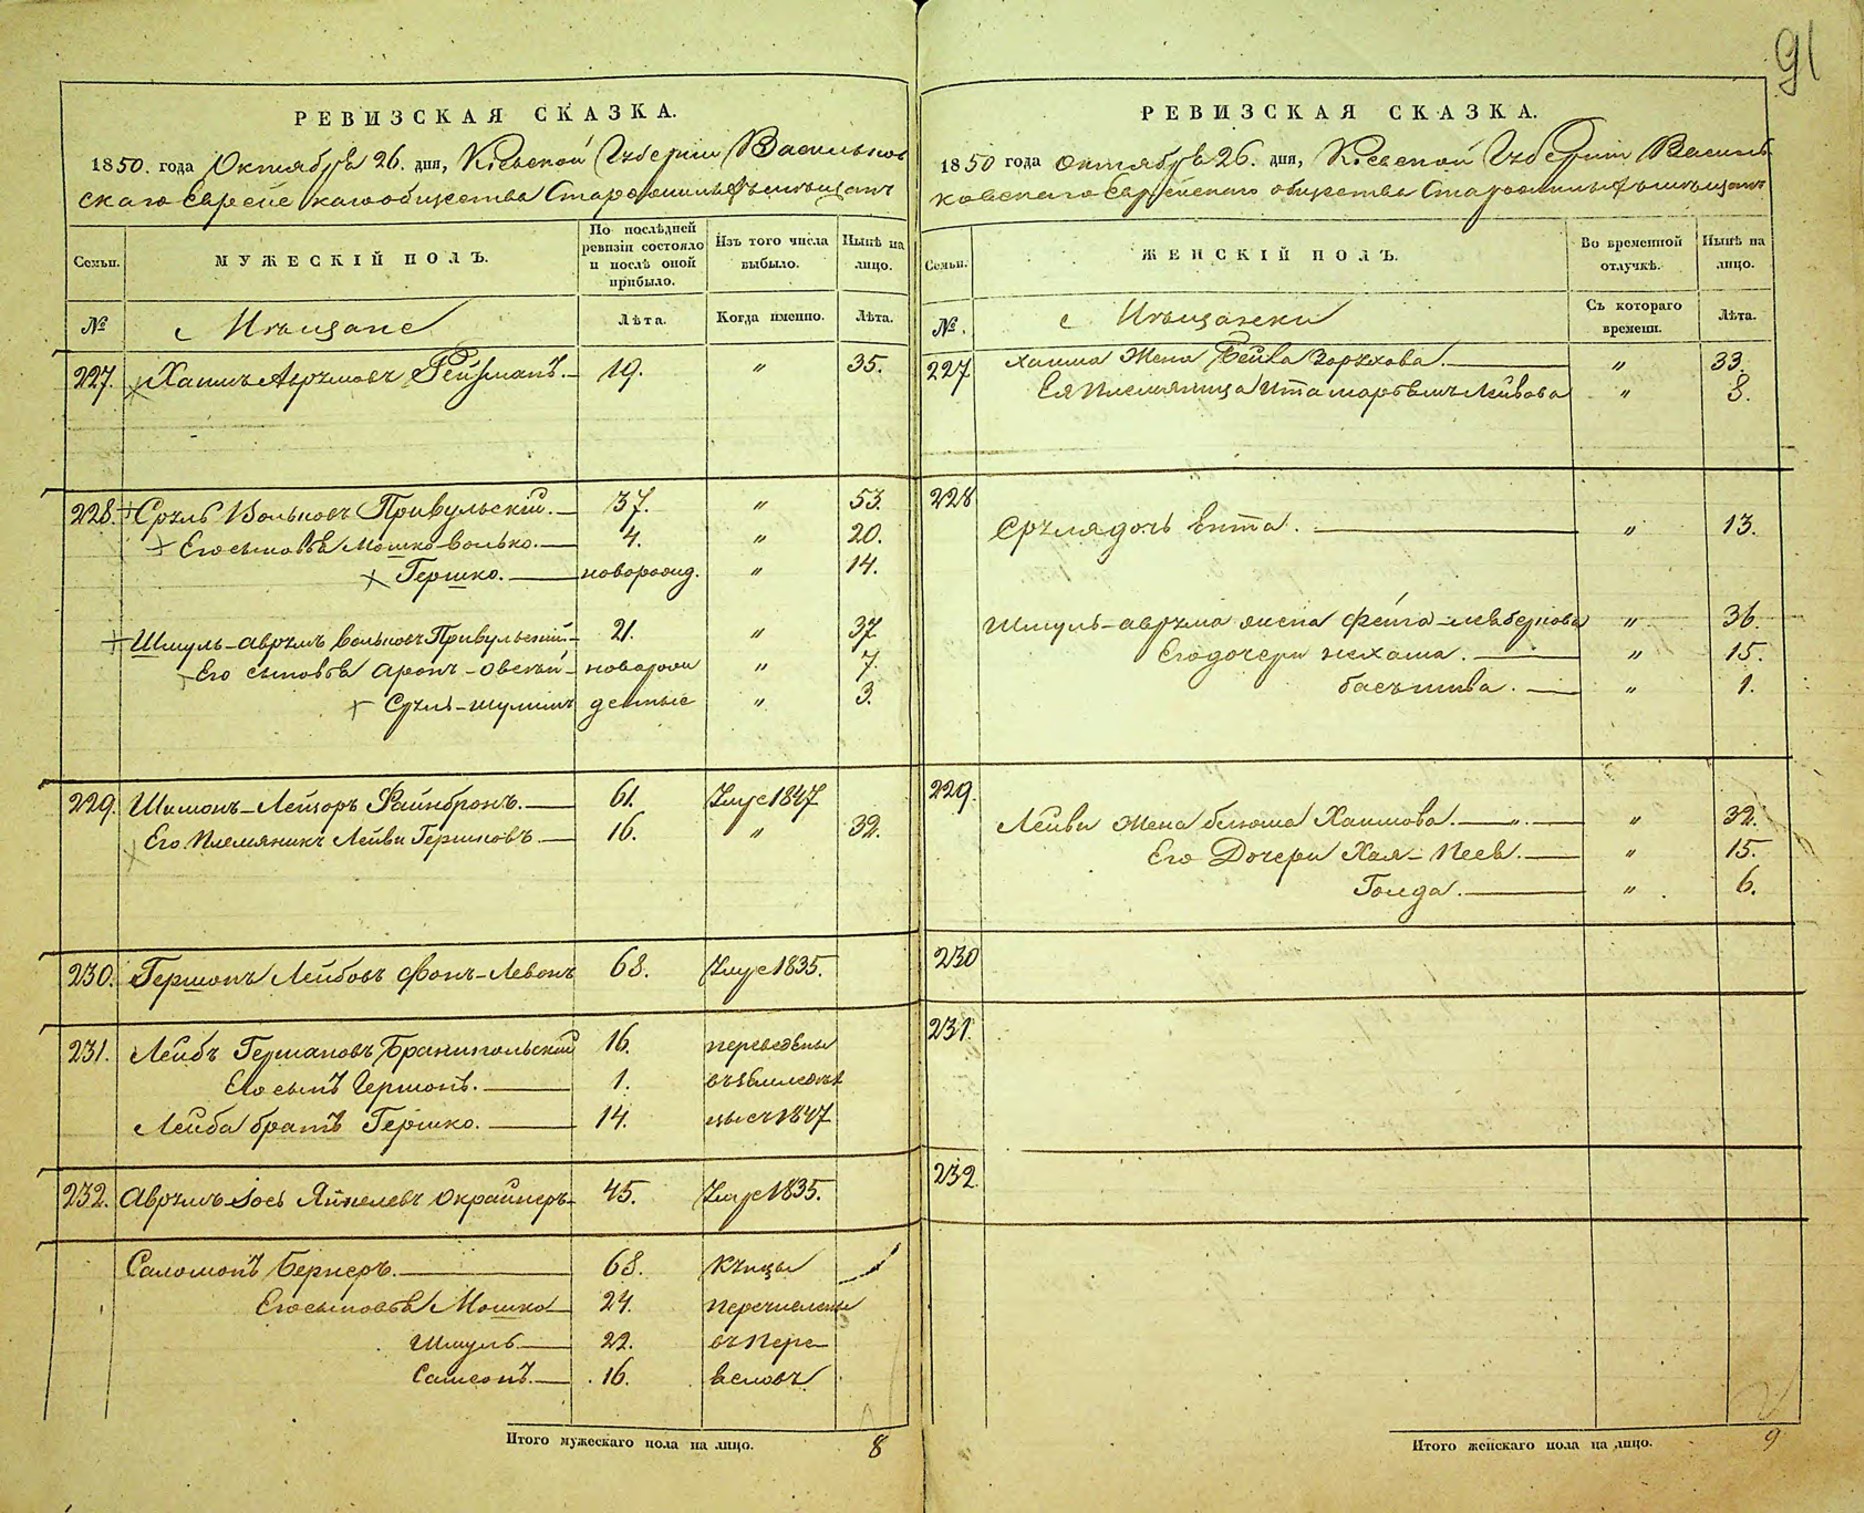 91
РЕВИЗСКАЯ СКАЗКА.
1850. года Октября 26. дня, Кіевской Губерніи Васильков
скаго Еврейскаго общества Старожилыхъ мѣщанъ
Семьи.
МУЖЕСКІЙ ПОЛЪ.
По послѣдней ревизіи состояло и послѣ оной прибыло.
Изъ того числа выбыло.
Нынѣ на лицо.
№
Мѣщане
Лѣта.
Когда именно.
Лѣта.
227. Хаимъ Аврумовъ Рейзманъ. 19. " 35.
228. Сруль Вольковъ Привульскій. 37. " 53.
Его сыновья Мошко-Волько. 4. " 20.
Гершко. новорожд. " 14.
Шмуль-Аврумъ Вольковъ Привульскій 21. " 37
Его сыновья Аронъ-Овсѣй новорож " 7.
Сруль-Шулимъ денные " 3.
229. Шимонъ-Лейзоръ Файнбронъ. 61. Умре 1847
Его Племяникъ Лейви Гершковъ 16. " 32.
230. Гершонъ Лейбовъ Фонъ-Левонъ 68. Умре 1835.
231. Лейбъ Гершоновъ Бранипольский 16. переведены
Его сынъ Гершонъ. 1. въ
Лейба братъ Гершко. 14. 1847
232. Аврумъ-Іось Янкелевъ Окрайнеръ 45. Умре 1835.
Саломонъ Бернеръ. 68. Купцы
Его сыновья Мошко 24. перечислены
Шмуль 22. въ Пере-
Самсонъ. 16. яславъ
Итого мужескаго пола на лицо. 8
РЕВИЗСКАЯ СКАЗКА.
1850 года Октября 26. дня, Кіевской Губерніи Василь-
ковскаго Еврейскаго общества Старожилыхъ мѣщанъ
Семьи.
ЖЕНСКІЙ ПОЛЪ.
Во временной отлучкѣ.
Нынѣ на лицо.
№.
Мѣщанки
Съ котораго времени.
Лѣта.
227 Хаима Жена Бейла Зорухова. " 33.
Ея Племянница Ита Лейбова " 8.
228 Сруля дочь Ента. " 13.
Шмуль-Аврума жена Фейга " 36.
Его дочери Нехама. " 15.
Басъшива. " 1.
229. Лейви Жена Блюма Хаимова. " 32.
Его Дочери Хая-Песя. " 15.
Голда. " 6.
230
231.
232
Итого женскаго пола на лицо. 9